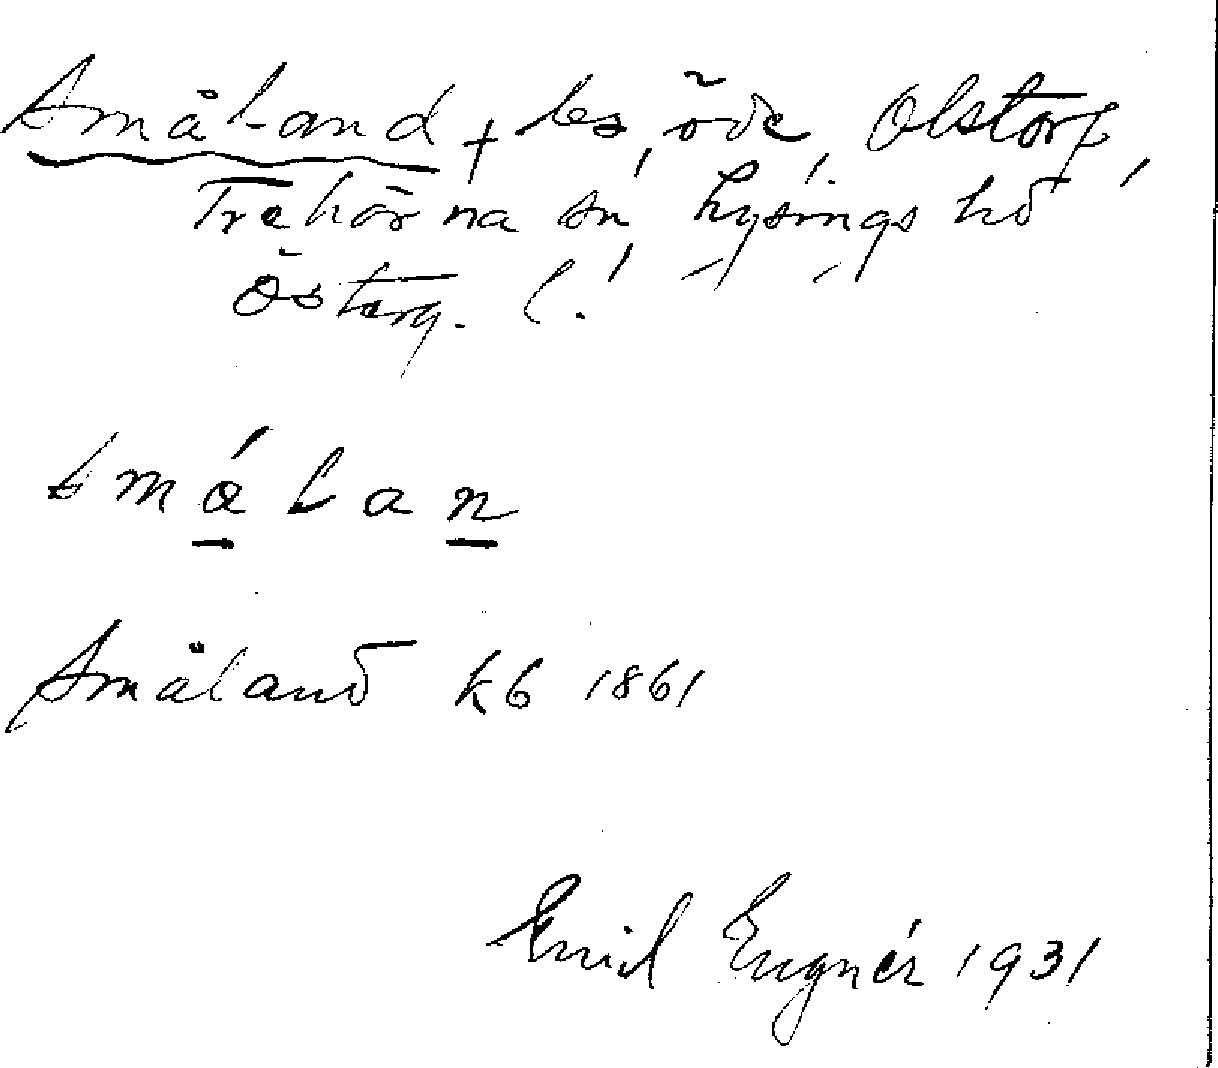 Småland, † ls, öde, Olstorp,
Trehörna sn, Lysings hd
Österg. l.
småLan
Småland kb 1861
Emil Engnér 1931